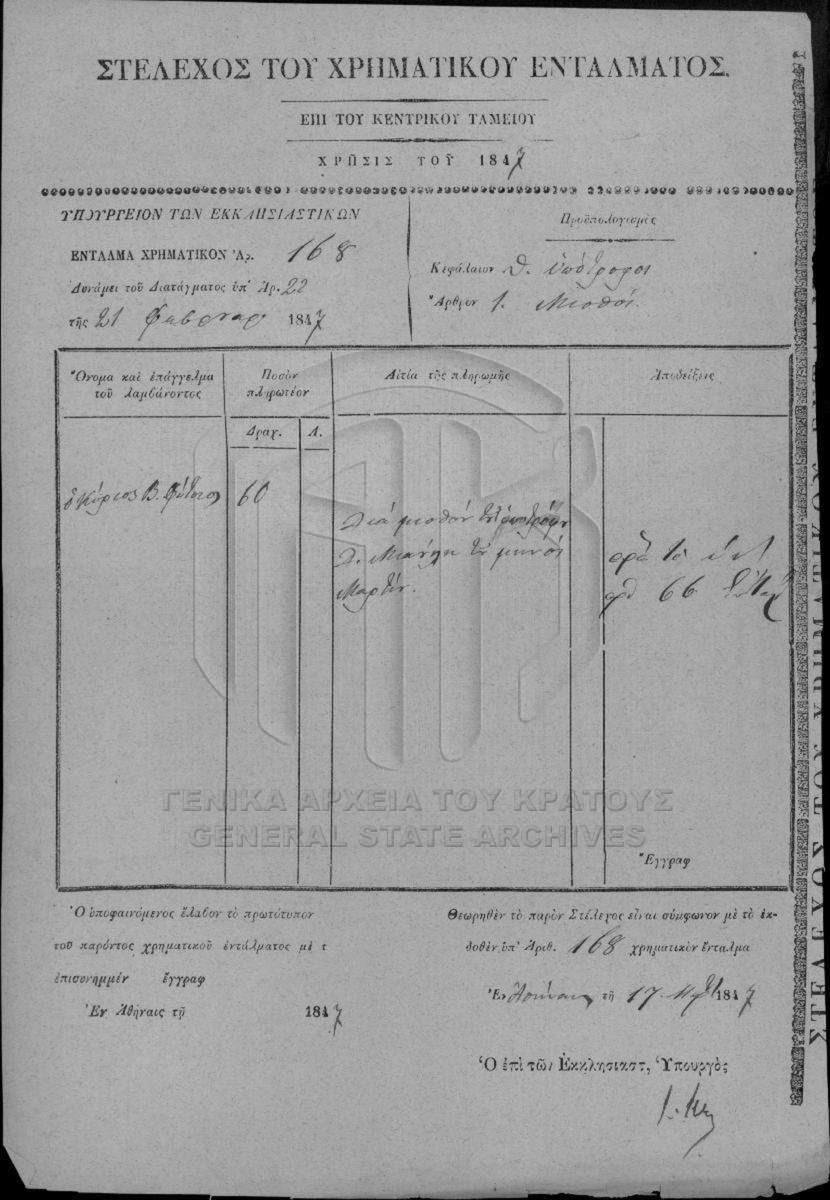 ΣΤΕΛΕΧΟΣ ΤΟΥ ΧΡΗΜΑΤΙΚΟΥ ΕΝΤΑΛΜΑΤΟΣ.
ΕΠΙ ΤΟΥ ΚΕΝΤΡΙΚΟΥ ΤΑΜΕΙΟΥ
ΧΡΗΣΙΣ ΤΟΥ 1847
ΥΠΟΥΡΓΕΙΟΝ ΤΩΝ ΕΚΚΛΗΣΙΑΣΤΙΚΩΝ
ΕΝΤΑΛΜΑ ΧΡΗΜΑΤΙΚΟΝ Ἀρ. 168
Δυνάμει τοῦ Διατάγματος ὑπ' Ἀρ. 22
τῆς 21 Φεβρουαρ 1847
Προϋπολογισμὸς
Κεφάλαιον Θ. ὑπότροφοι
Ἄρθρον 1. Μισθοί.
Ὄνομα καὶ ἐπάγγελμα
τοῦ λαμβάνοντος
Ποσὸν
πληρωτέον
Αἰτία τῆς πληρωμῆς
Ἀποδείξεις
Δραχ. Λ.
ὁ Κύριος Β.
60
Διά μισθόν τοῦ ὑποτρόφου
τοῦ μηνός
Μαρτίου.
66
Ἔγγραφ
ΓΕΝΙΚΑ ΑΡΧΕΙΑ ΤΟΥ ΚΡΑΤΟΥΣ
GENERAL STATE ARCHIVES
Ὁ ὑποφαινόμενος ἔλαβον τὸ πρωτότυπον
τοῦ παρόντος χρηματικοῦ ἐντάλματος μὲ τ
ἐπισυνημμέν ἔγγραφ
Ἐν Ἀθήναις τῇ 1847
Θεωρηθὲν τὸ παρὸν Στέλεχος εἶναι σύμφωνον μὲ τὸ ἐκ-
δοθὲν ὑπ' Ἀριθ. 168 χρηματικὸν ἔνταλμα
Ἐν Ἀθήναις τῇ 17 1847
Ὁ ἐπὶ τῶν Ἐκκλησιαστ, Ὑπουργὸς
ΣΤΕΛΕΧΟΣ ΤΟΥ ΧΡΗΜΑΤΙΚΟΥ ΕΝΤΑΛΜΑΤΟΣ